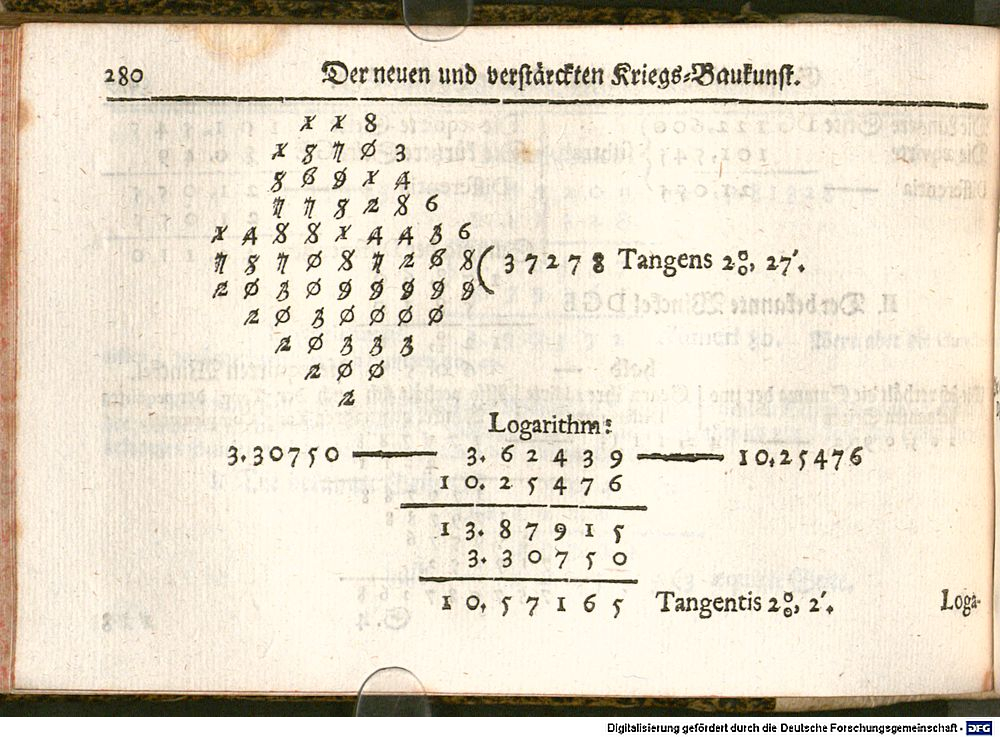 280 Der neuen und verstärckten Kriegs-Baukunst.
1 1 8
1 5 7 0 3
5 6 9 1 4
7 7 5 2 8 6
1 4 8 8 1 4 4 3 6
7 5 7 0 8 7 2 6 8 ( 3 7 2 7 8 Tangens 20°, 27′.
2 0 3 0 9 9 9 9 9
2 0 3 0 0 0 0
2 0 3 3 3
2 0 0
2
Logarithm:
3.30750 — 3.62439 — 10.25476
10.25476
13.87915
3.30750
10.57165 Tangentis 20°, 2′. Loga-
Digitalisierung gefördert durch die Deutsche Forschungsgemeinschaft - DFG